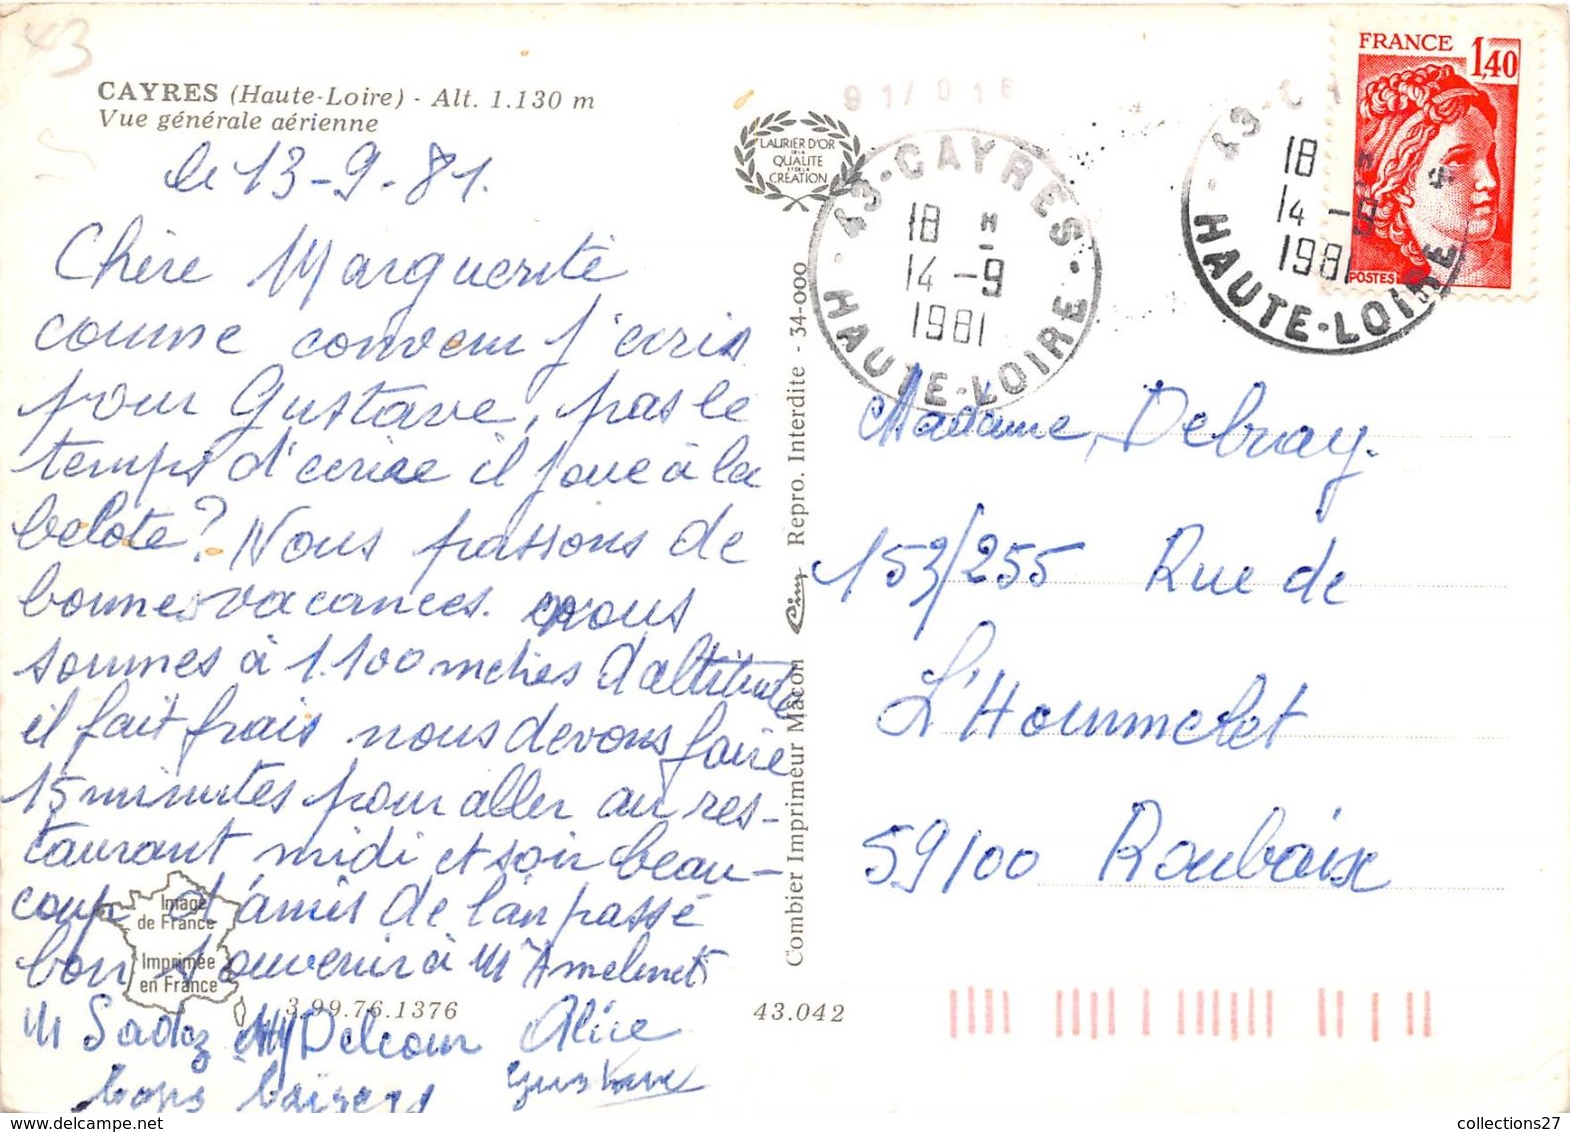 43
CAYRES (Haute-Loire) - Alt. 1.130 m
Vue générale aérienne
le 13-9-81.
Chère Marguerite
comme convenu j'écris
pour Gustave, pas le
temps d'écrire il joue à la
belote? Nous passons de
bonnes vacances. nous
sommes à 1.100 mètres d'altitude
il fait frais nous devons faire
15 minutes pour aller au res-
taurant midi et soir beau-
coup d'amis de l'an passé
bon souvenir à Mr
M Delcour Alice
bons baisers Gustave
Image
de France
Imprimée
en France
3.99.76.1376
43.042
LAURIER D'OR
DE LA
QUALITE
ET DE LA
CREATION
Combier Imprimeur Mâcon Cim Repro. Interdite - 34-000
91/016
43-CAYRES
18 H
14-9
1981
HAUTE-LOIRE
43-C
18 H
14-9
1981
HAUTE-LOIRE
FRANCE 1,40
POSTES
Madame, Delvray.
153/255 Rue de
L'Hommelet
59100 Roubaix
collections27